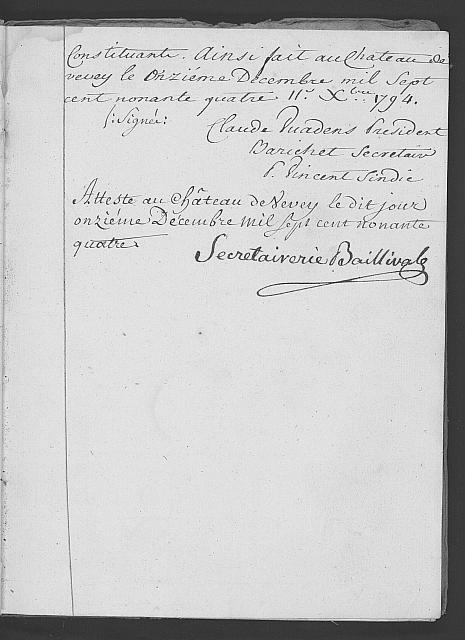 Constituante. Ainsi fait au Chateau de
vevey le Onziéme Decembre mil Sept
cent nonante quatre 11.e Xbre 1794.
/:Signée:
Claude Puadens President
Barichet Secretair
P. Vincent Sindic
Atteste au Château de Vevey le dit jour
onziéme Decembre Mil sept cent nonante
quatre.
Secretairerie Baillivale